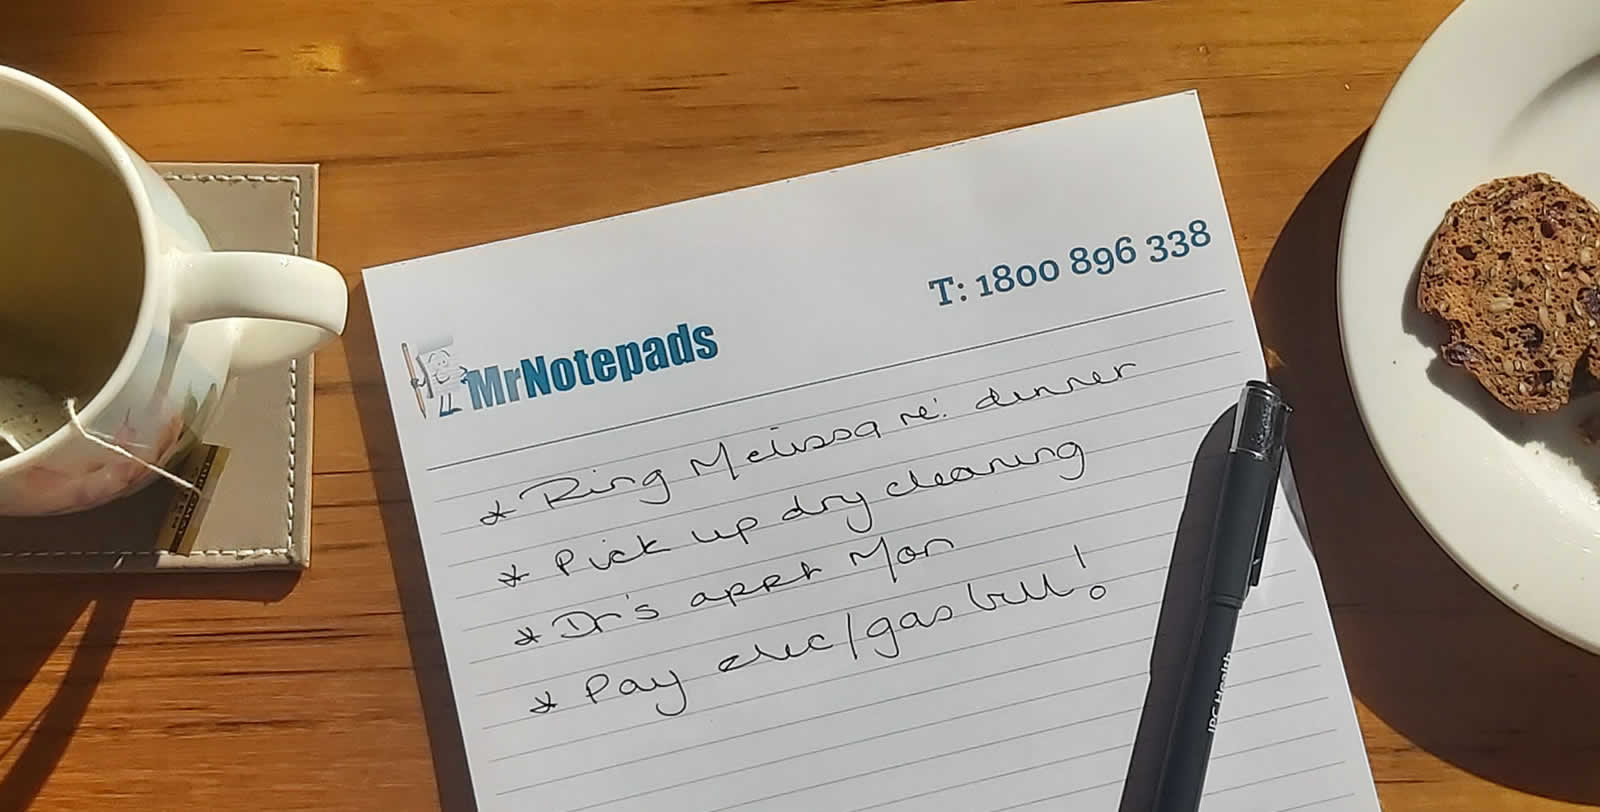 T: 1800 896 338
MrNotepads
* Ring Melissa re: dinner
* Pick up dry cleaning
* Dr's appt Mon
* Pay elec/gas bill!
IPC Health